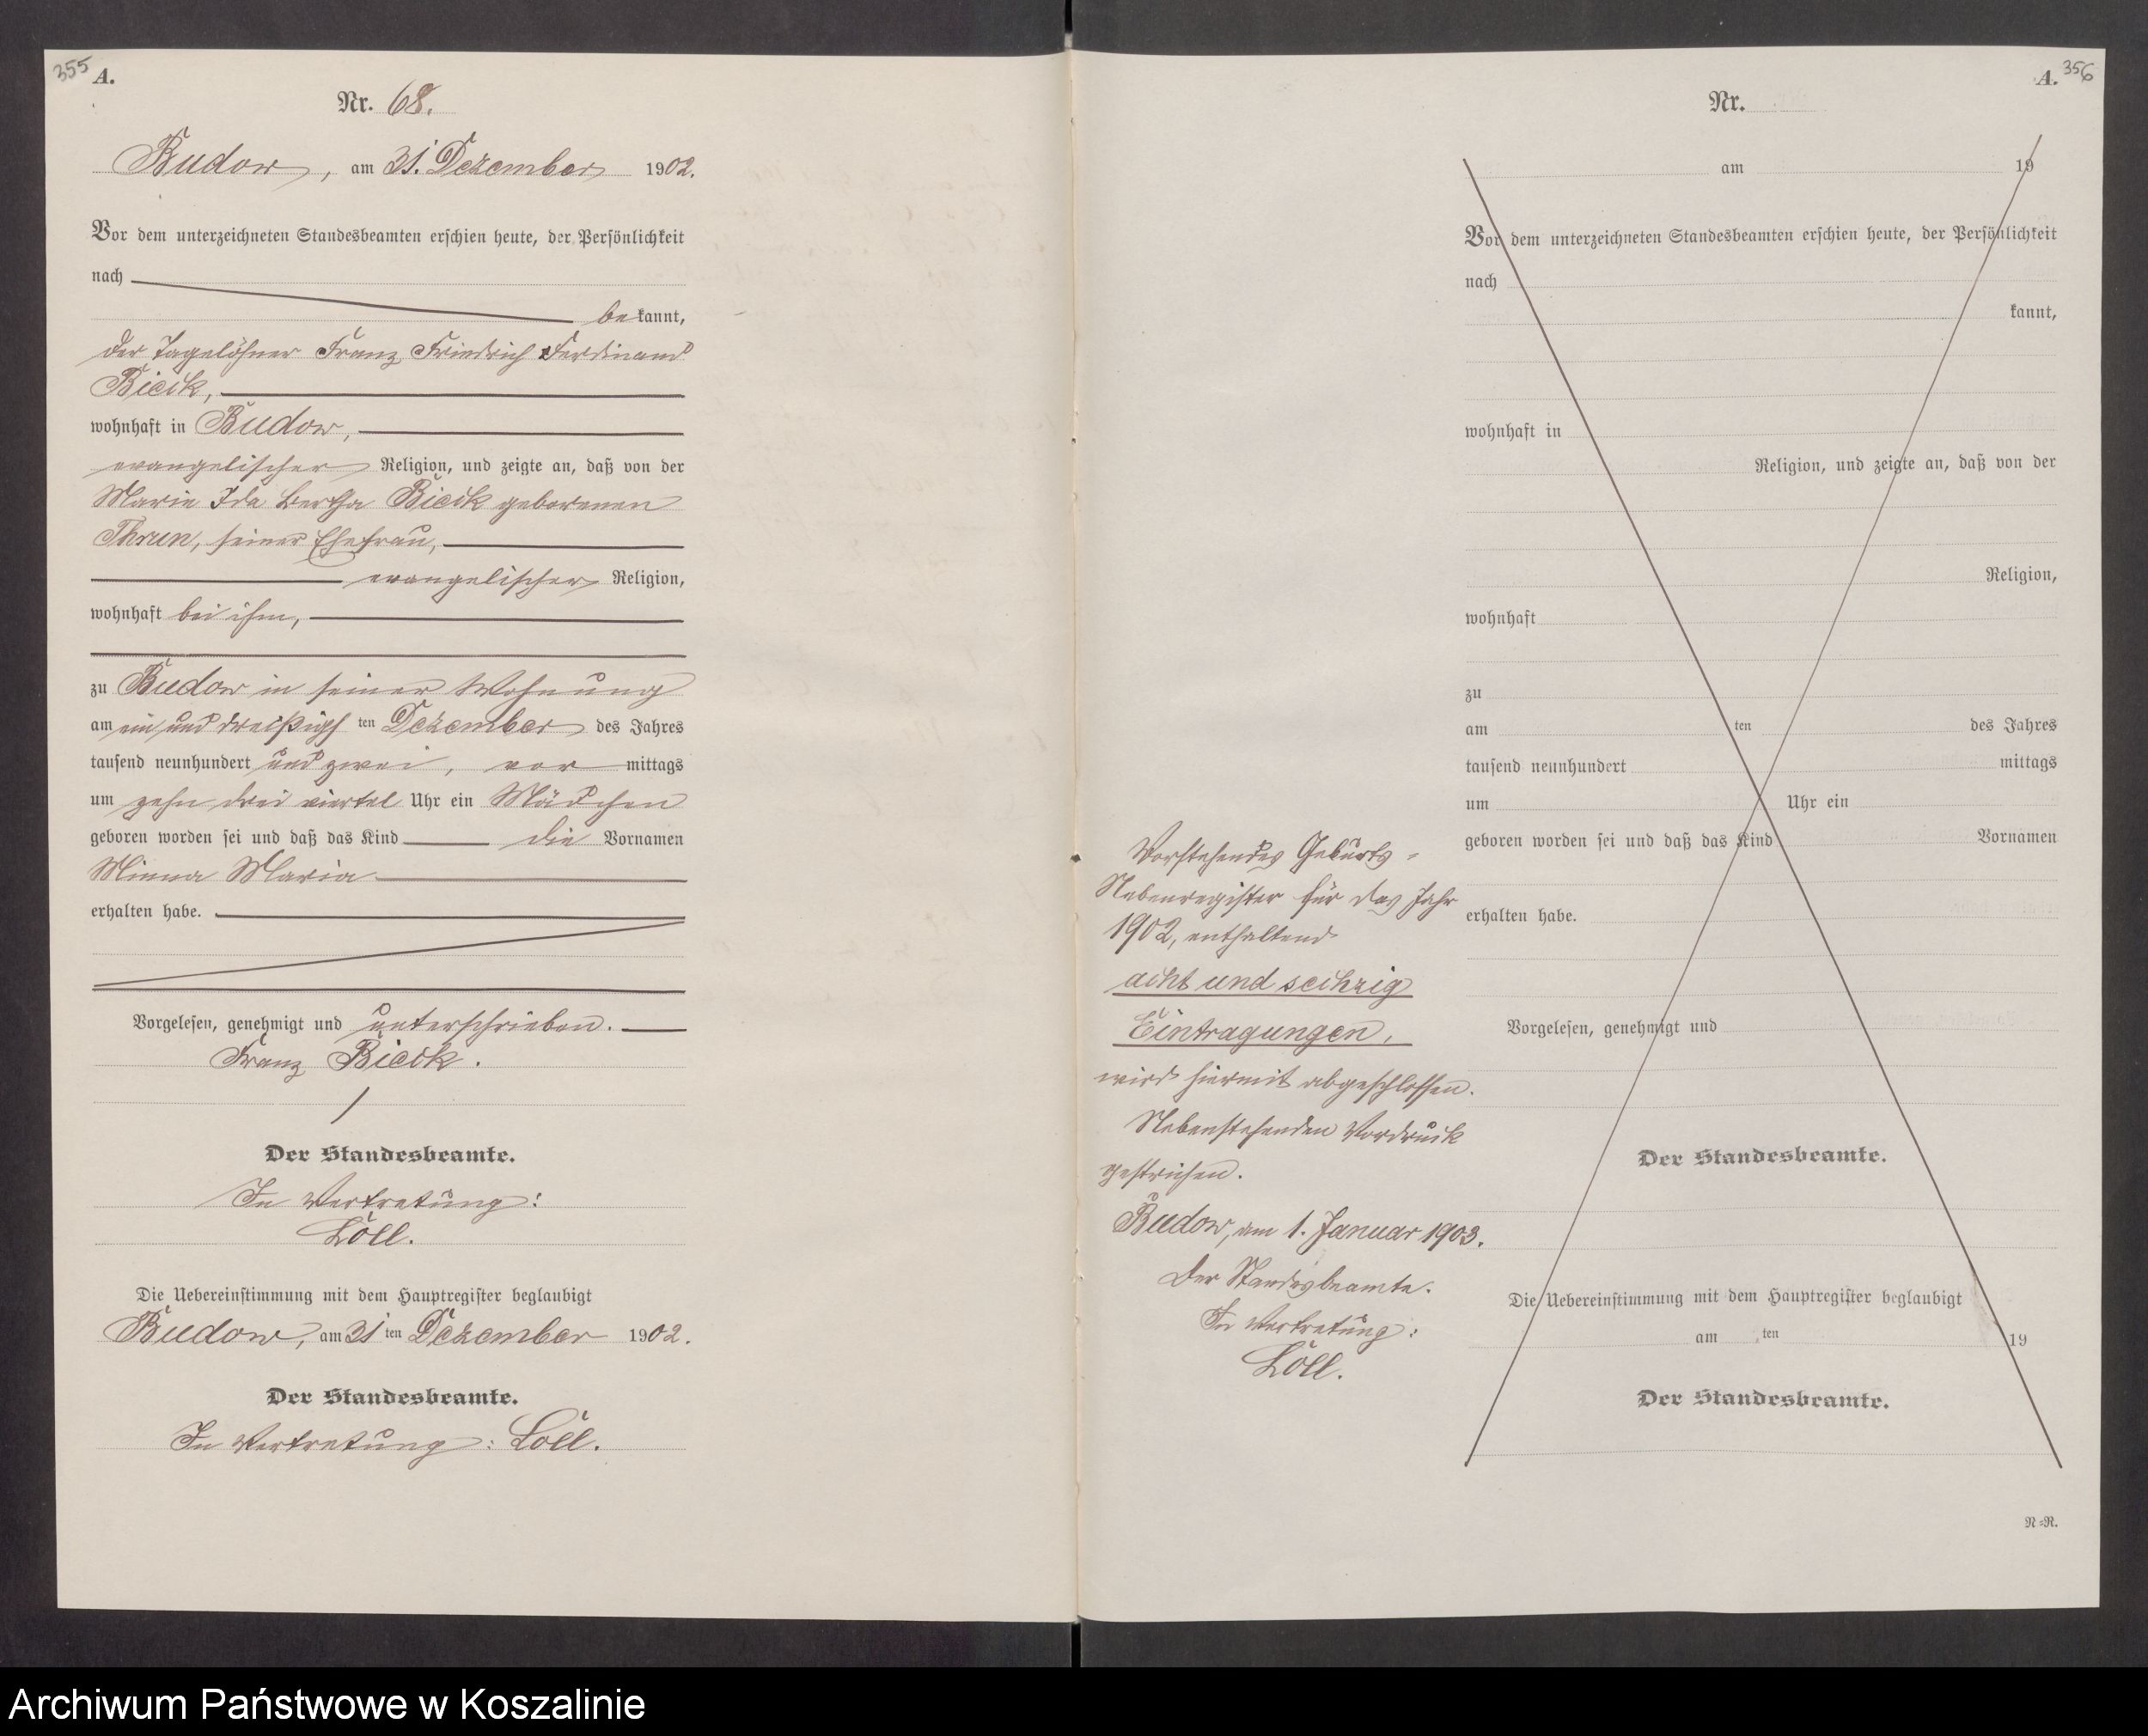 355
A.
Nr. 68.
Budow, am 31. Dezember 1902.
Vor dem unterzeichneten Standesbeamten erschien heute, der Persönlichkeit
nach
bekannt,
der Tagelöhner Franz Friedrich Ferdinand
Bicik,
wohnhaft in Budow,
evangelischer Religion, und zeigte an, daß von der
Marie Ida Bertha Bicik geborenen
Thrun, seiner Ehefrau,
evangelischer Religion,
wohnhaft bei ihm,
zu Budow in seiner Wohnung
am ein und dreißigsten Dezember des Jahres
tausend neunhundert und zwei, vor mittags
um zehn drei viertel Uhr ein Mädchen
geboren worden sei und daß das Kind die Vornamen
Minna Maria
erhalten habe.
Vorgelesen, genehmigt und unterschrieben.
Franz Bicik.
Der Standesbeamte.
In Vertretung:
Löll.
Die Uebereinstimmung mit dem Hauptregister beglaubigt
Budow, am 31 ten Dezember 1902.
Der Standesbeamte.
In Vertretung: Löll.
A. 356
Nr.
am 19
Vor dem unterzeichneten Standesbeamten erschien heute, der Persönlichkeit
nach
kannt,
wohnhaft in
Religion, und zeigte an, daß von der
Religion,
wohnhaft
zu
am ten des Jahres
tausend neunhundert mittags
um Uhr ein
geboren worden sei und daß das Kind Vornamen
erhalten habe.
Vorgelesen, genehmigt und
Der Standesbeamte.
Die Uebereinstimmung mit dem Hauptregister beglaubigt
am ten 19
Der Standesbeamte.
N=R.
Vorstehendes Geburts-
Nebenregister für das Jahr
1902, enthaltend
acht und sechzig
Eintragungen,
wird hiermit abgeschlossen.
Nebenstehenden Vordruck
gestrichen.
Budow, am 1. Januar 1903.
Der Standesbeamte.
In Vertretung:
Löll.
Archiwum Państwowe w Koszalinie